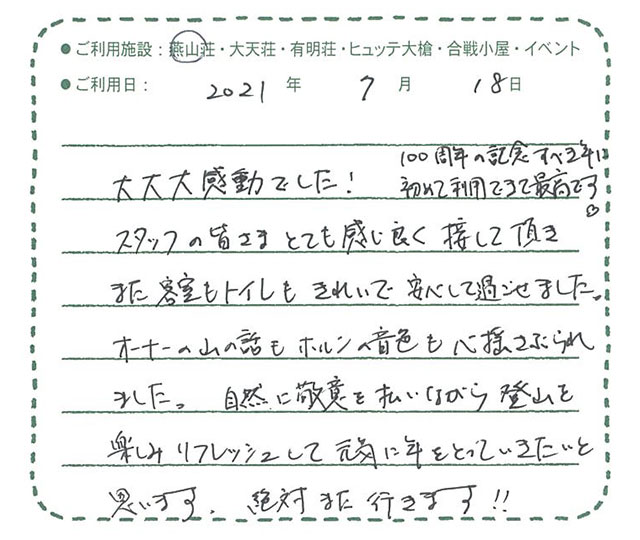 ●ご利用施設：燕山荘・大天荘・有明荘・ヒュッテ大槍・合戦小屋・イベント
●ご利用日： 2021 年 7 月 18 日
100周年の記念すべき年に
初めて利用できて最高です
大大大感動でした！
スタッフの皆さまとても感じ良く接して頂き
また客室もトイレもきれいで安心して過ごせました。
オーナーの山の話もホルンの音色も心揺さぶられ
ました。自然に敬意を払いながら登山を
楽しみリフレッシュして元気に年をとっていきたいと
思います。絶対また行きます!!